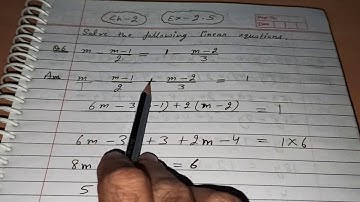 Ch-2 Ex-2.5
Solve the following linear equations.
Q6 m - m-1/2 = 1 - m-2/3
Ans m/1 - m-1/2 + m-2/3 = 1
6m - 3( -1) + 2(m-2) = 1
6m - 3 + 3 + 2m - 4 = 1×6
8m = 6
5